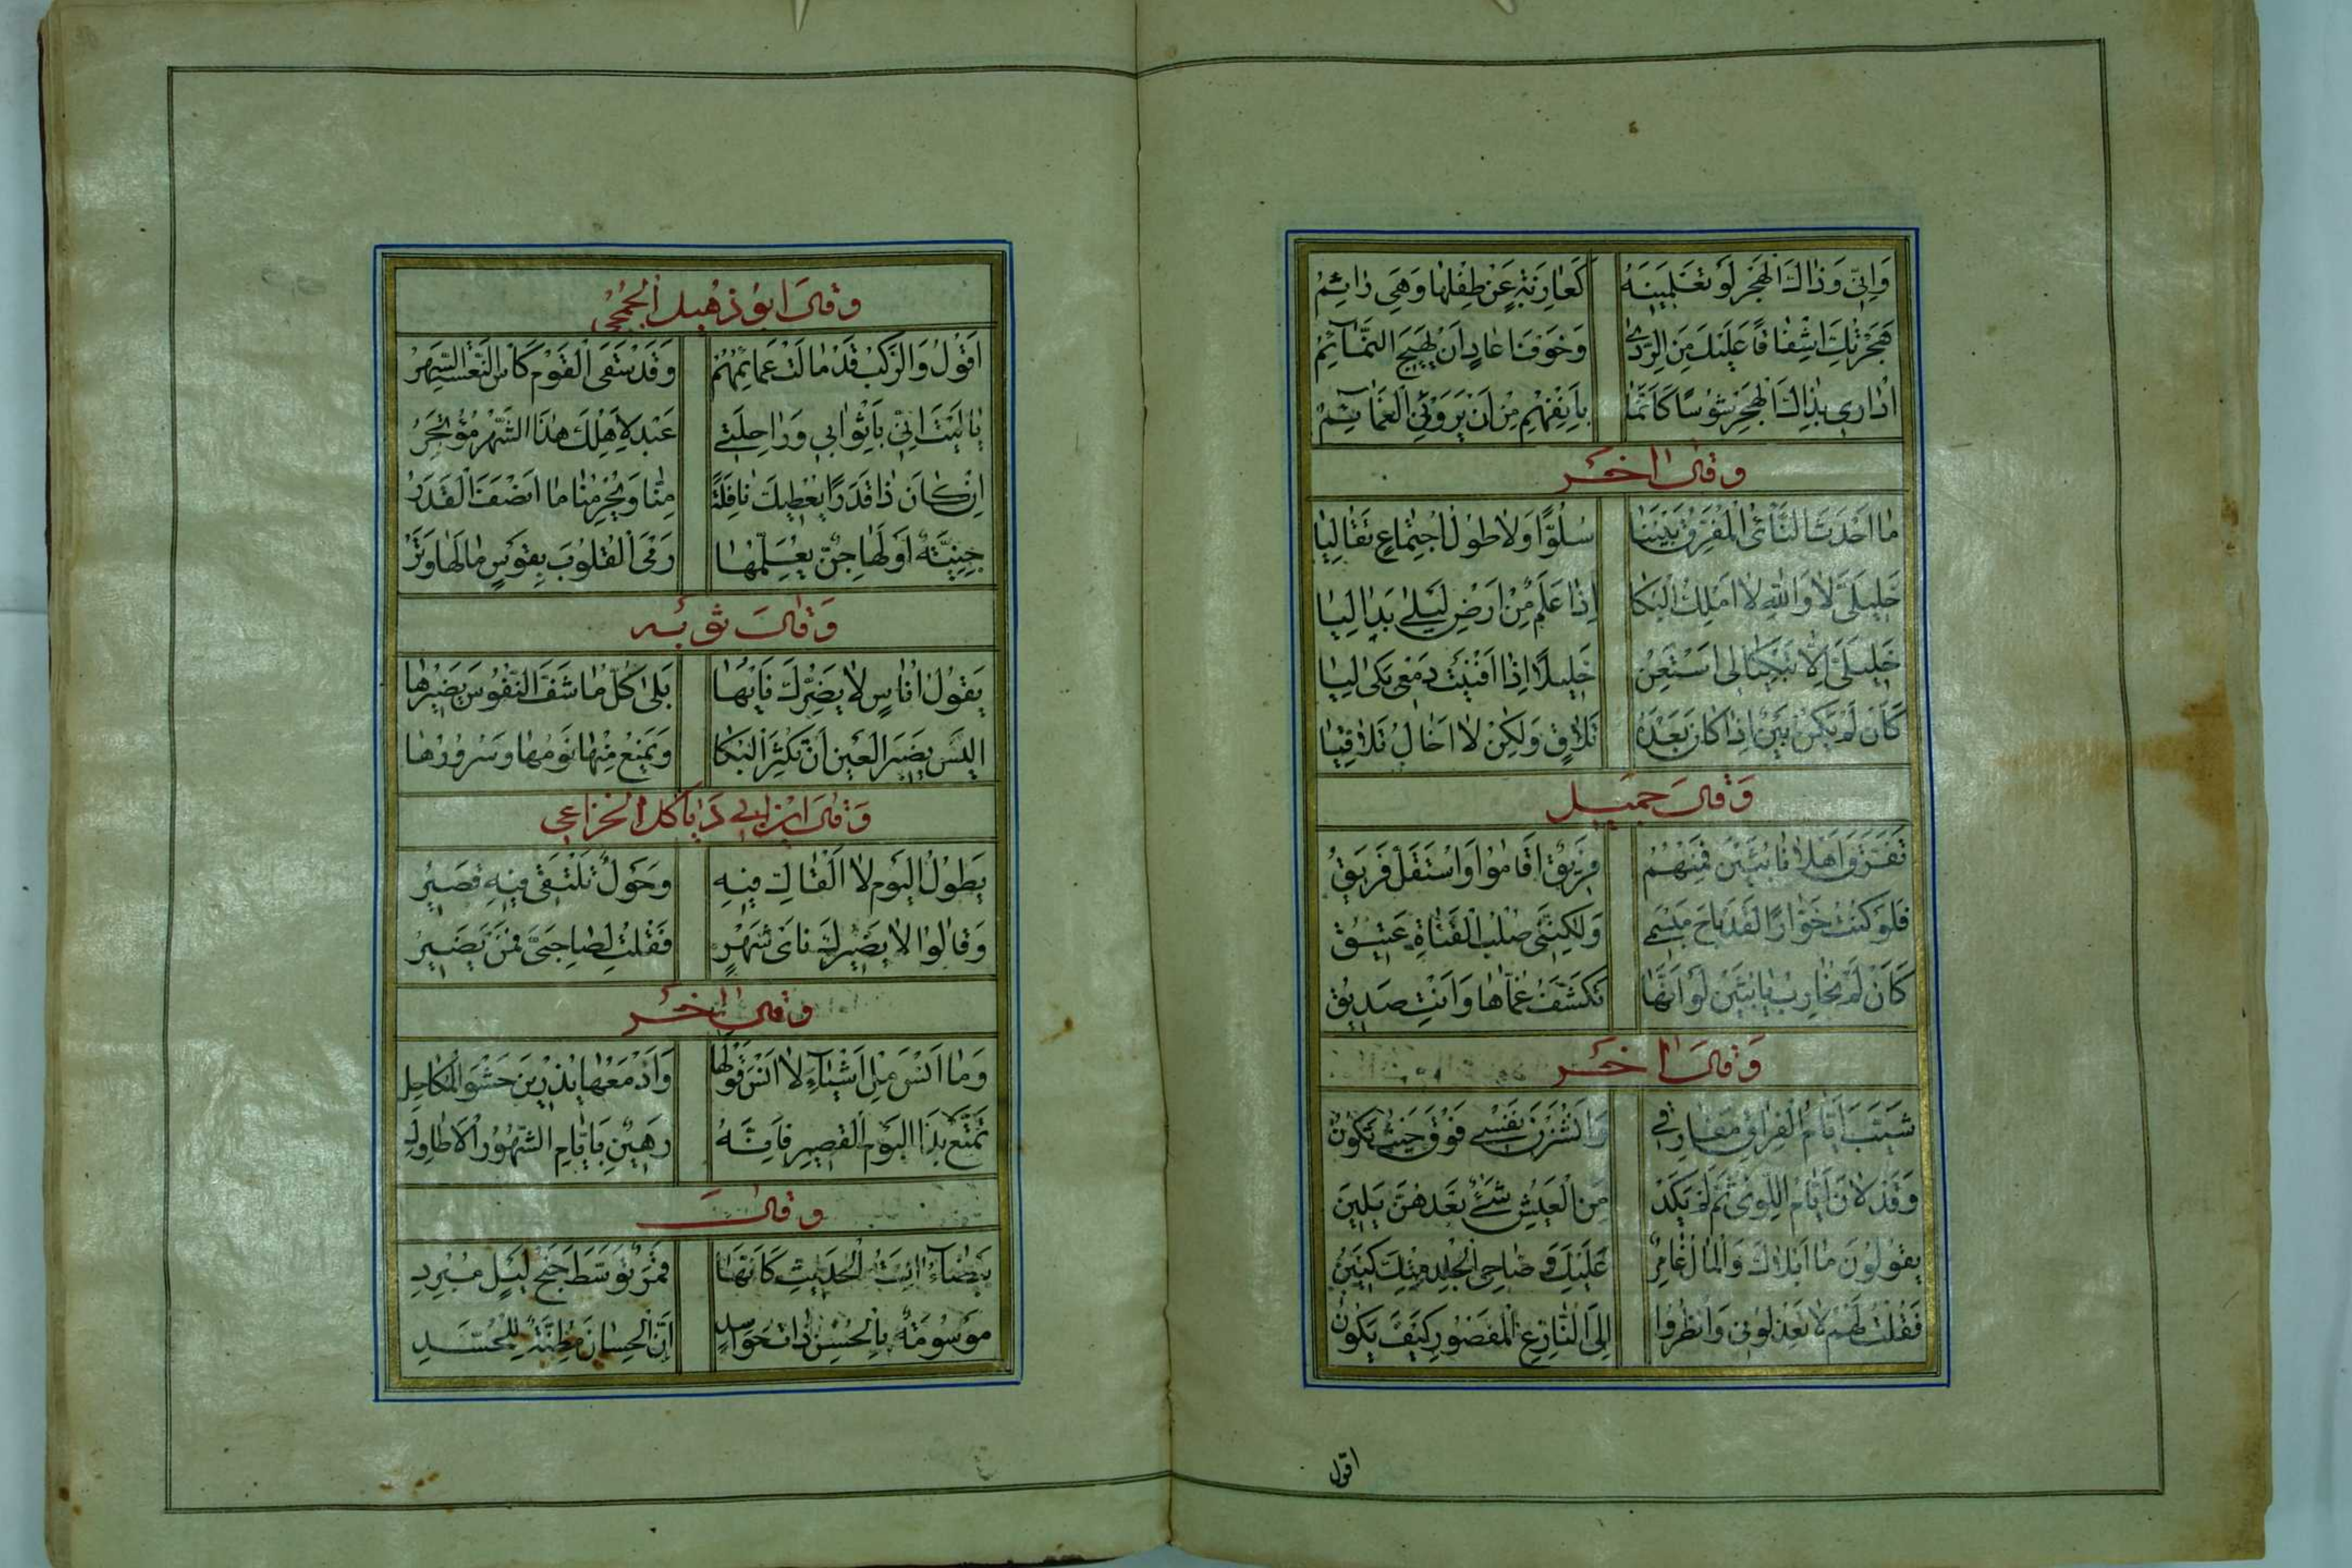 وَاِنّي وَذاكَ الهَجْرَ لَو تَعْلَمِينَهُ كَعازِبَةٍ عَنْ طِفْلِها وَهِيَ رائِمُ
هَجَرْتُكَ اشِفاقًا عَلَيكَ مِنَ الرَّدىٰ وَخَوفَ عادٍ اَنْ يَهِيجَ النَّمآئِمُ
اُداري بِذاكَ الهَجْرِ شُوسًا كَاَنَّما بِآنِفِهِم مِنْ اَنْ يَرَوني الغَمآئِمُ
وَقالَ آخَر
ما اَحْدَثَ النَّأىُ المُفَرِّقُ بَيْنَنا سُلُوًّا وَلا طُولُ اجْتِماعٍ تَقالِيا
خَلِيلَىَّ لا وَاللهِ لا اَمْلِكُ البُكا اِذا عَلَمٌ مِنْ اَرْضِ لَيلىٰ بَدا لِيا
خَلِيلَىَّ اِلّا تَبْكِيا لى اَسْتَعِنْ خَلِيلًا اِذا اَفْنَيْتُ دَمْعى بَكىٰ لِيا
كَاَنْ لَمْ يَكُنْ بَيْنٌ اِذا كانَ بَعْدَهُ تَلاقٍ وَلكِنْ لا اَخالُ تَلاقِيا
وَقالَ جَميل
تَفَرَّقَ اَهْلانا بُثَيْنَ فَمِنْهُمُ فَرِيقٌ اَقامُوا وَاسْتَقَلَّ فَرِيقُ
فَلَو كُنْتُ خَوّارًا لَقَدْ باحَ مَيْسَمى وَلكِنَّنى صُلْبُ القَناةِ عَتِيقُ
كَاَنْ لَمْ نُحارِبْ يا بُثَيْنَ لَو اَنَّها تَكَشَّفُ غُمّاها وَاَنْتِ صَدِيقُ
وَقالَ آخَر
شَيَّبَ اَيّامُ الفِراقِ مَفارِقى وَاَنْشَزْنَ نَفْسى فَوْقَ حَيْثُ تَكُونُ
وَقَدْ لانَ اَيّامُ اللِّوىٰ ثُمَّ لَمْ يَكَدْ مِنَ العَيْشِ شَىْءٌ بَعْدَهُنَّ يَلِينُ
يَقُولُونَ ما اَبْلاكَ وَالمالُ غامِرٌ عَلَيْكَ وَضاحِى الجِلْدِ مِنْكَ كَنِينُ
فَقُلْتُ لَهُمْ لا تَعْذِلُونى وَانْظُرُوا اِلَى النّازِعِ المَقْصُورِ كَيْفَ يَكُونُ
اقول
وَقالَ ابُو ذهبل الجُمَحِى
اَقُولُ وَالرَّكْبُ قَدْ مالَتْ عَمائِمُهُمْ وَقَدْ سَقَى القَوْمَ كَأسَ النَّعْسَةِ السَّهَرُ
يا لَيْتَ اَنّى بِاَثْوابى وَراحِلَتى عَبْدٌ لِاَهْلِكِ هٰذَا الشَّهْرَ مُؤْتَجَرُ
اِنْ كانَ ذا قَدَرًا يُعْطِيكَ نافِلَةً مِنّا وَيُحْرِمُنا ما اَنْصَفَ القَدَرُ
جِنِّيَّةٌ اَوْ لَها جِنٌّ يُعَلِّمُها رَمْىَ القُلُوبِ بِقَوْسٍ ما لَها وَتَرُ
وَقالَ تَوبَة
يَقُولُ اُناسٌ لا يَضِرُكَ نَأيُها بَلىٰ كُلُّ ما شَفَّ النُّفُوسَ يَضِيرُها
اَلَيْسَ يَضِيرُ العَيْنَ اَنْ تُكْثِرَ البُكا وَيَمْنَعُ مِنْها نَوْمُها وَسُرُورُها
وَقالَ ابن ابى دباكل الخزاعى
يَطُولُ اليَوْمُ لا اَلْقاكِ فِيهِ وَحَوْلٌ نَلْتَقى فِيهِ قَصِيرُ
وَقالُوا لا يَضِيرُكَ نَاىُ شَهْرٍ فَقُلْتُ لِصاحِبَىَّ فَمَنْ يَضِيرُ
وَقالَ آخَر
وَما اَنْسَ مِلْ اَشْيآءِ لا اَنْسَ قَوْلَها وَاَدْمُعُها يُذْرِينَ حَشْوَ المَكاحِلِ
تَمَتَّعْ بِذَا اليَوْمِ القَصِيرِ فَاِنَّهُ رَهِينٌ بِاَيّامِ الشُّهُورِ الاَطاوِلِ
وَقالَ
بَيْضآءُ آنِسَةُ الحَدِيثِ كَاَنَّها قَمَرٌ تَوَسَّطَ جُنْحَ لَيْلٍ مُبْرِدِ
مَوْسُومَةٌ بِالحُسْنِ ذاتُ حَواسِدٍ اِنَّ الحِسانَ مَظِنَّةٌ لِلْحُسَّدِ